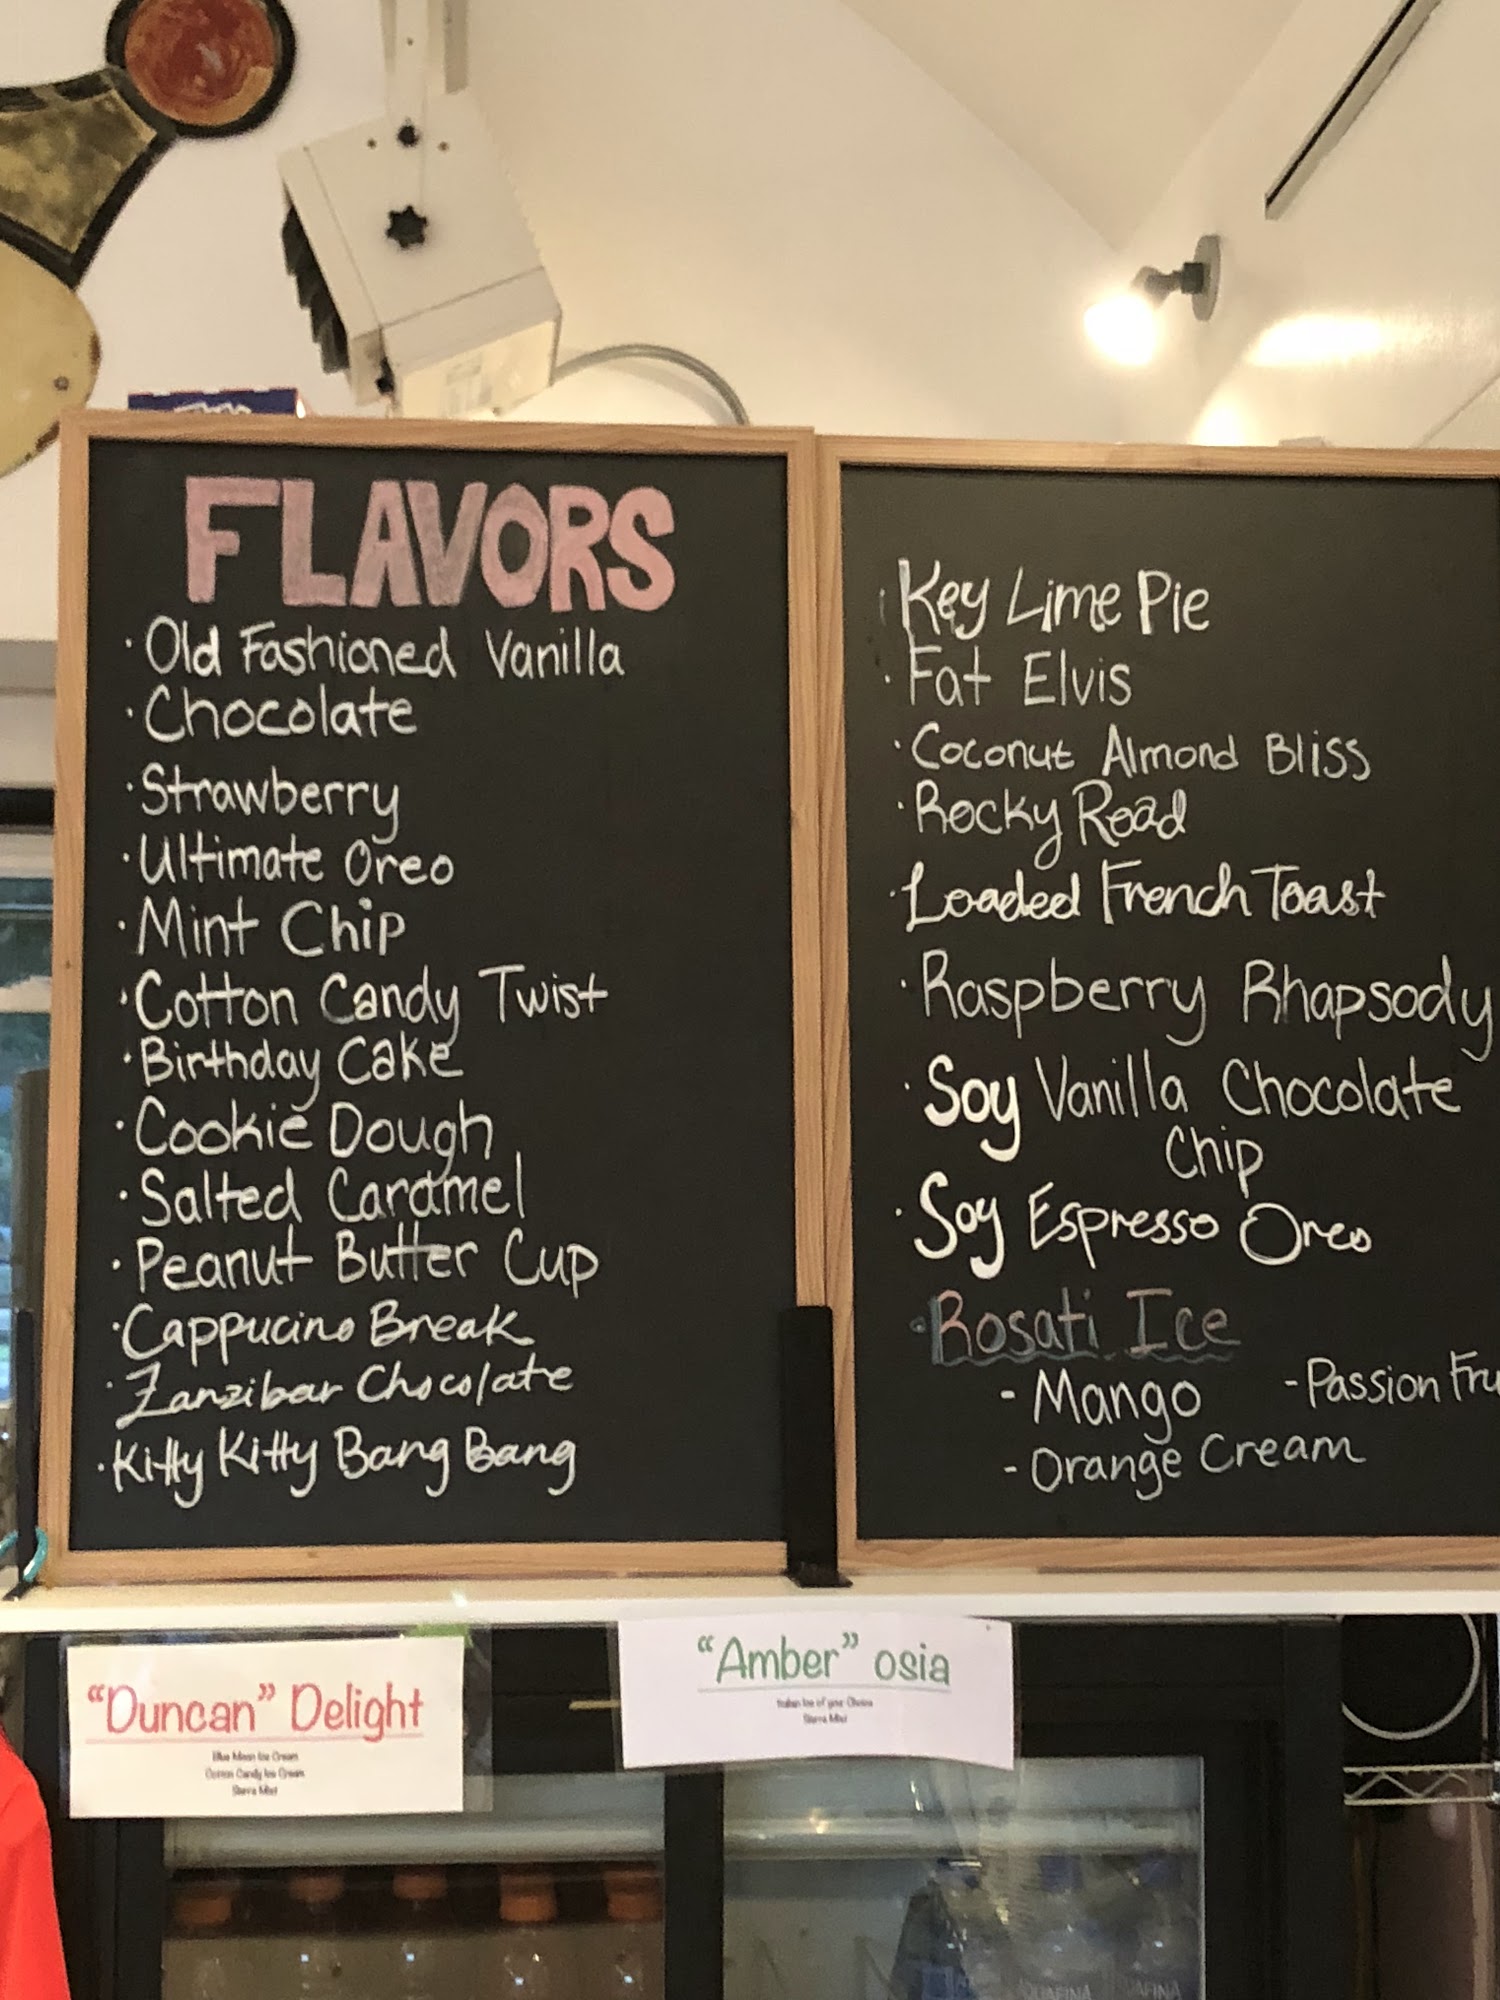 FLAVORS
· Old Fashioned Vanilla
· Chocolate
· Strawberry
· Ultimate Oreo
· Mint Chip
· Cotton Candy Twist
· Birthday Cake
· Cookie Dough
· Salted Caramel
· Peanut Butter Cup
· Cappucino Break
· Zanzibar Chocolate
· Kitty Kitty Bang Bang
Key Lime Pie
· Fat Elvis
· Coconut Almond Bliss
· Rocky Road
· Loaded French Toast
· Raspberry Rhapsody
· Soy Vanilla Chocolate
Chip
· Soy Espresso Oreo
· Rosati Ice
- Mango - Passion Fru
- Orange Cream
"Duncan" Delight
Blue Moon Ice Cream
Cotton Candy Ice Cream
Sierra Mist
"Amber" osia
Italian Ice of your Choice
Sierra Mist
AQUAFINA